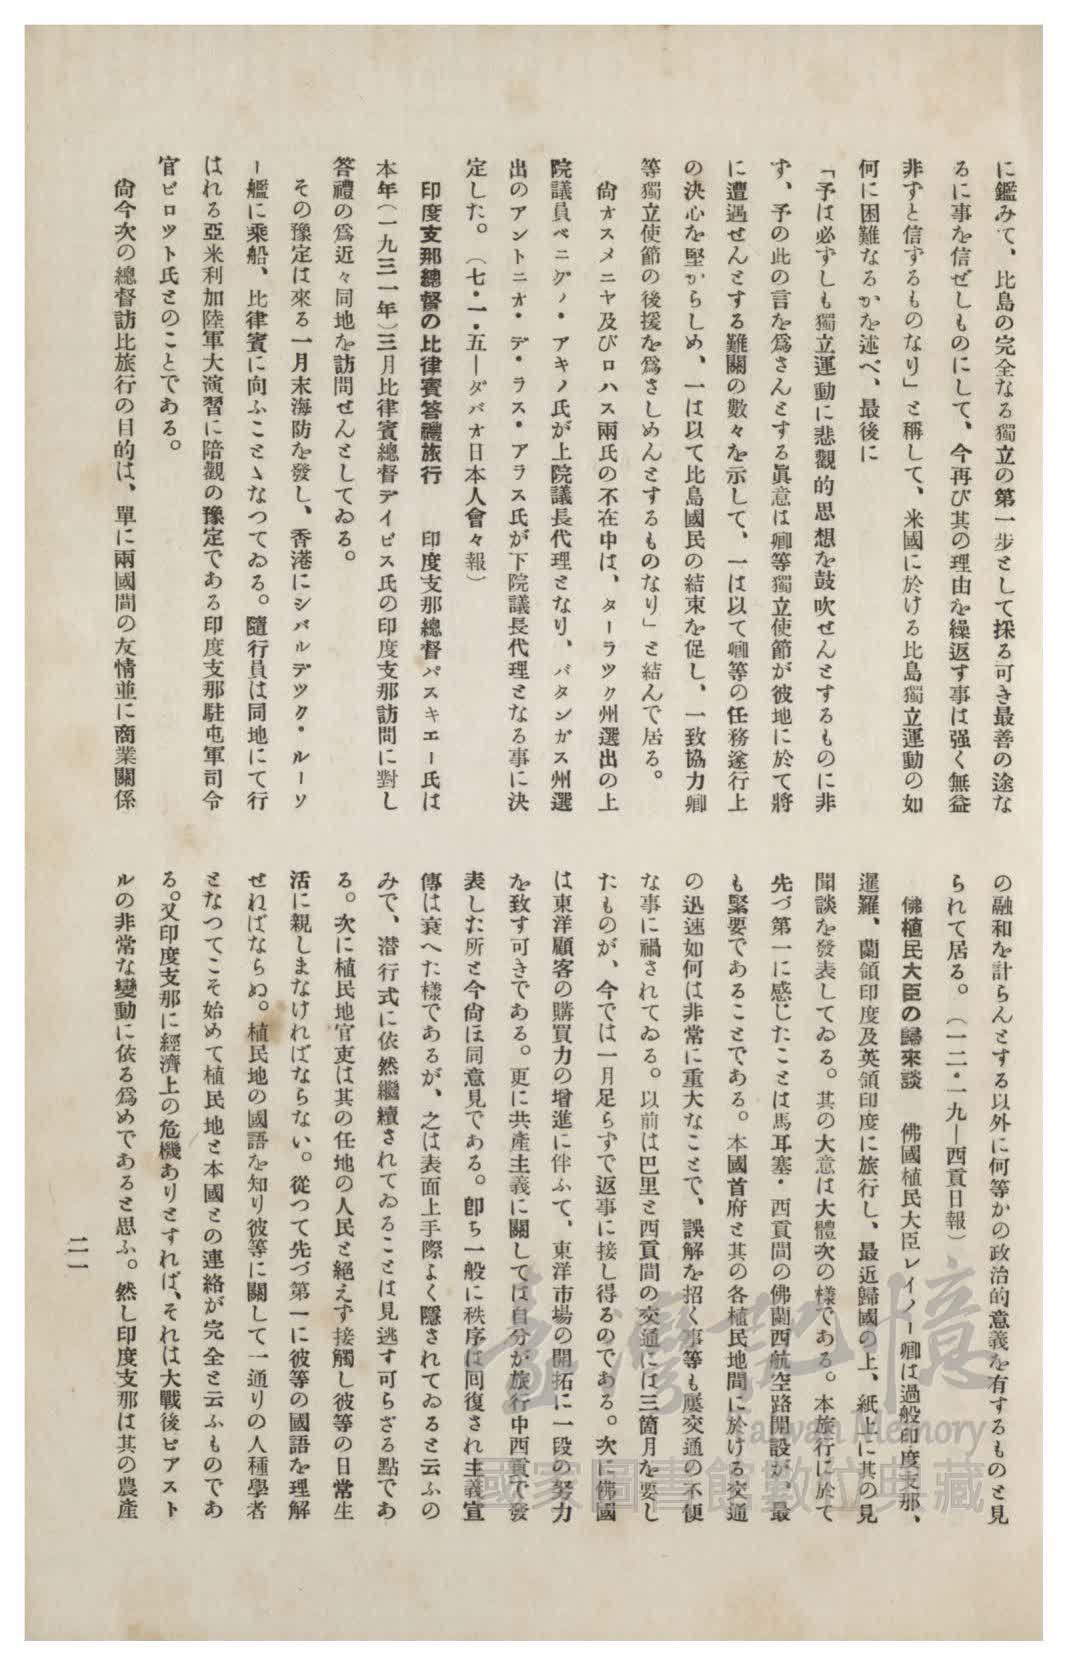 に鑑みて、比島の完全なる獨立の第一步として採る可き最善の途な
るに事を信ぜしものにして、今再び其の理由を繰返す事は强く無益
非ずと信ずるものなり」と稱して、米國に於ける比島獨立運動の如
何に困難なるかを述べ、最後に
「予は必ずしも獨立運動に悲觀的思想を鼓吹せんとするものに非
ず、予の此の言を爲さんとする眞意は卿等獨立使節が彼地に於て將
に遭遇せんとする難關の數々を示して、一は以て卿等の任務遂行上
の決心を堅からしめ、一は以て比島國民の結束を促し、一致協力卿
等獨立使節の後援を爲さしめんとするものなり」と結んで居る。
尙オスメニヤ及びロハス兩氏の不在中は、ターラツク州選出の上
院議員ベニグノ・アキノ氏が上院議長代理となり、バタンガス州選
出のアントニオ・デ・ラス・アラス氏が下院議長代理となる事に決
定した。（七・一・五―ダバオ日本人會々報）
印度支那總督の比律賓答禮旅行　印度支那總督パスキエー氏は
本年（一九三一年）三月比律賓總督デイビス氏の印度支那訪問に對し
答禮の爲近々同地を訪問せんとしてゐる。
その豫定は來る一月末海防を發し、香港にシバルデツク・ルーソ
ー艦に乘船、比律賓に向ふことゝなつてゐる。隨行員は同地にて行
はれる亞米利加陸軍大演習に陪觀の豫定である印度支那駐屯軍司令
官ビロツト氏とのことである。
尙今次の總督訪比旅行の目的は、單に兩國間の友情並に商業關係
の融和を計らんとする以外に何等かの政治的意義を有するものと見
られて居る。（一二・一九―西貢日報）
佛植民大臣の歸來談　佛國植民大臣レイノー卿は過般印度支那、
暹羅、蘭領印度及英領印度に旅行し、最近歸國の上、紙上に其の見
聞談を發表してゐる。其の大意は大體次の樣である。本旅行に於て
先づ第一に感じたことは馬耳塞・西貢間の佛蘭西航空路開設が、最
も緊要であることである。本國首府と其の各植民地間に於ける交通
の迅速如何は非常に重大なことで、誤解を招く事等も屢交通の不便
な事に禍されてゐる。以前は巴里と西貢間の交通には三箇月を要し
たものが、今では一月足らずで返事に接し得るのである。次に佛國
は東洋顧客の購買力の增進に伴ふて、東洋市場の開拓に一段の努力
を致す可きである。更に共產主義に關しては自分が旅行中西貢で發
表した所と今尙ほ同意見である。卽ち一般に秩序は回復され主義宣
傳は衰へた樣であるが、之は表面上手際よく隱されてゐると云ふの
みで、潜行式に依然繼續されてゐることは見逃す可らざる點であ
る。次に植民地官吏は其の任地の人民と絕えず接觸し彼等の日常生
活に親しまなければならない。從つて先づ第一に彼等の國語を理解
せねばならぬ。植民地の國語を知り彼等に關して一通りの人種學者
となつてこそ始めて植民地と本國との連絡が完全と云ふものであ
る。又印度支那に經濟上の危機ありとすれば、それは大戰後ピアスト
ルの非常な變動に依る爲めであると思ふ。然し印度支那は其の農產
二一
臺灣記憶
Taiwan Memory
國家圖書館數位典藏